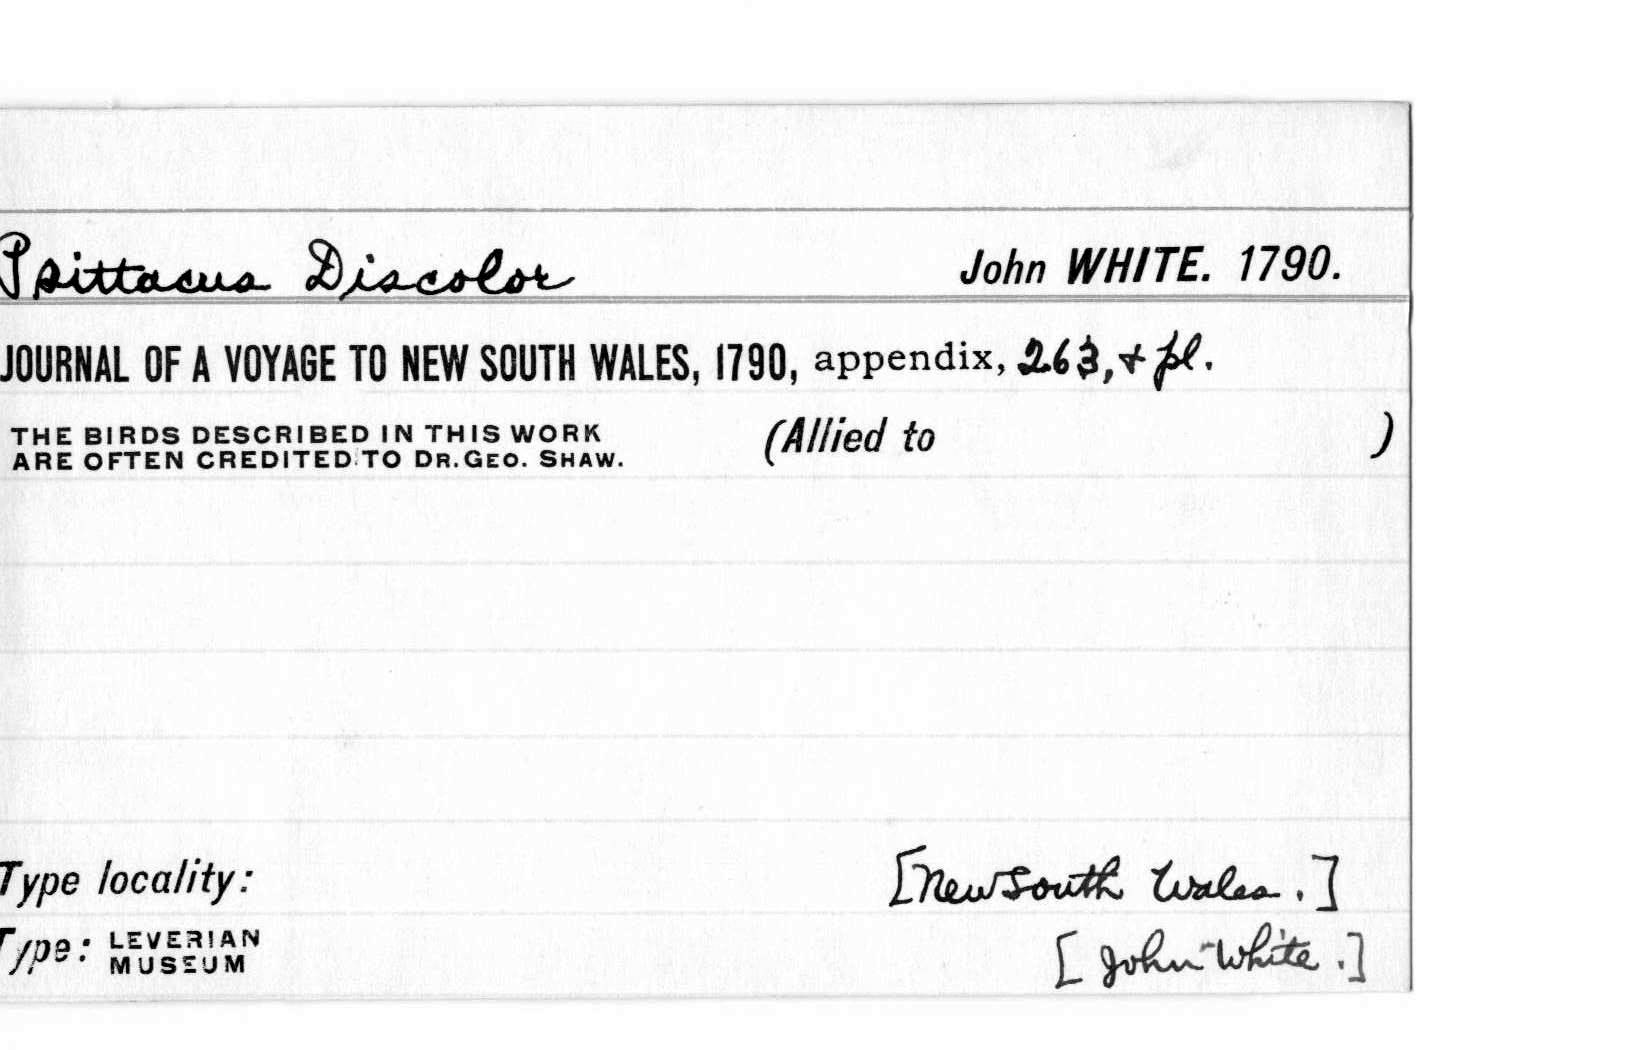 Psittacus Discolor John WHITE. 1790.
JOURNAL OF A VOYAGE TO NEW SOUTH WALES, 1790, appendix, 263, + pl.
THE BIRDS DESCRIBED IN THIS WORK (Allied to )
ARE OFTEN CREDITED TO DR. GEO. SHAW.
Type locality: [New South Wales.]
Type: LEVERIAN MUSEUM [John White.]